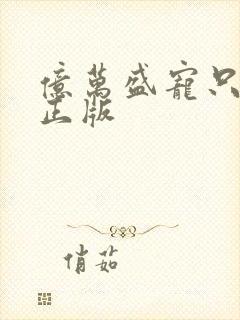 億萬盛寵只
正版
俏茹